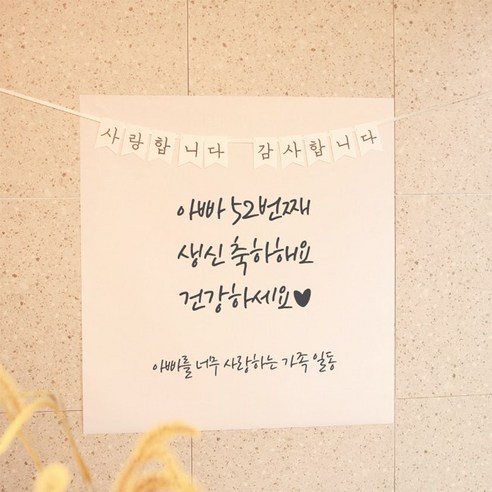 사랑합니다 감사합니다
아빠 52번째
생신 축하해요
건강하세요♥
아빠를 너무 사랑하는 가족 일동